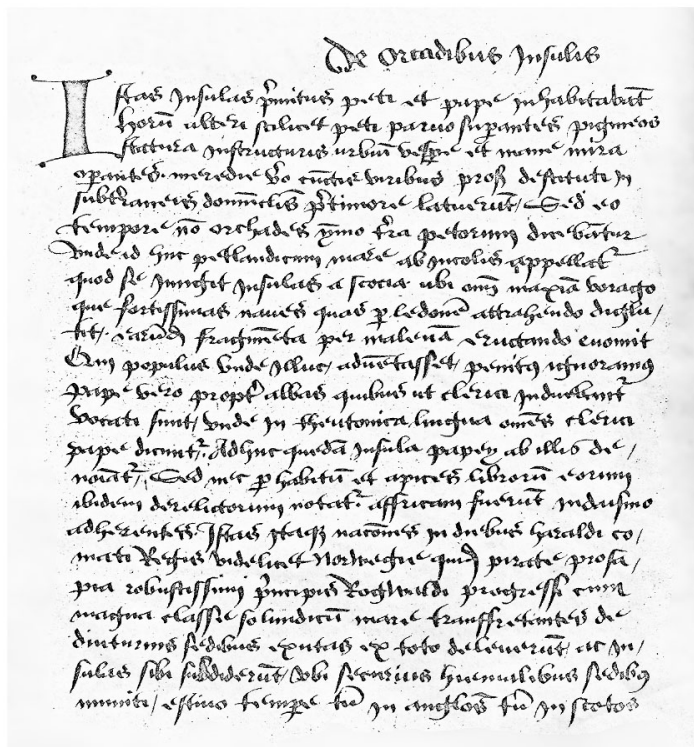 De Orcadibus Insulis
Istas Insulas p̄mitus peti et pape inhabitabāt
horū alteri scilicet peti paruo supantes pigmeos
statura in structuris urbium vespe et mane mira
opantes meredie v̄o cūctis viribus pros destituti in
subt̄raneis domūclis p̄timore latuerūt Sed eo
tempore nō orchades ymo t̄ra petorum dicebātur
vnde adhuc petlandicum mare ab incolis appellatr
quod se iungit Insulas a scocia vbi om̄ maxīa vorago
que fortissimas naues quas p ledonē attrahendo diglu,
tit, earūd fragmēta per malenā eructando euomit
Qui populus vnde illuc, aduētasset, penitꝰ ignoramꝰ
Pape vero propt̄ albas quibus ut clerici induebāntr
vocati sunt, vnde in theutonica lingua om̄es clerici
pape dicūtr. Adhuc quedā insula papey ab illis de,
noīatr, Sed nec p habitū et apices librorū eorum
ibidem derelictorum notatr affricani fuerūt iudaismo
adherentes. Istas Itaqꝫ nacōnes in diebus haraldi co,
mati Regis videlicet Norwegie quid pirate prosā,
pia robustissimi p̄ncipis Rogwaldi progressi cum
magna classe solundicū mare transfretantes de
diuturnis sedibus exutas ex toto deleuerūt, ac in,
sulas sibi subdiderūt, vbi securius hiemalibus sedibꝰ
muniti, estiuo tempe tū in anglos tū in scotos